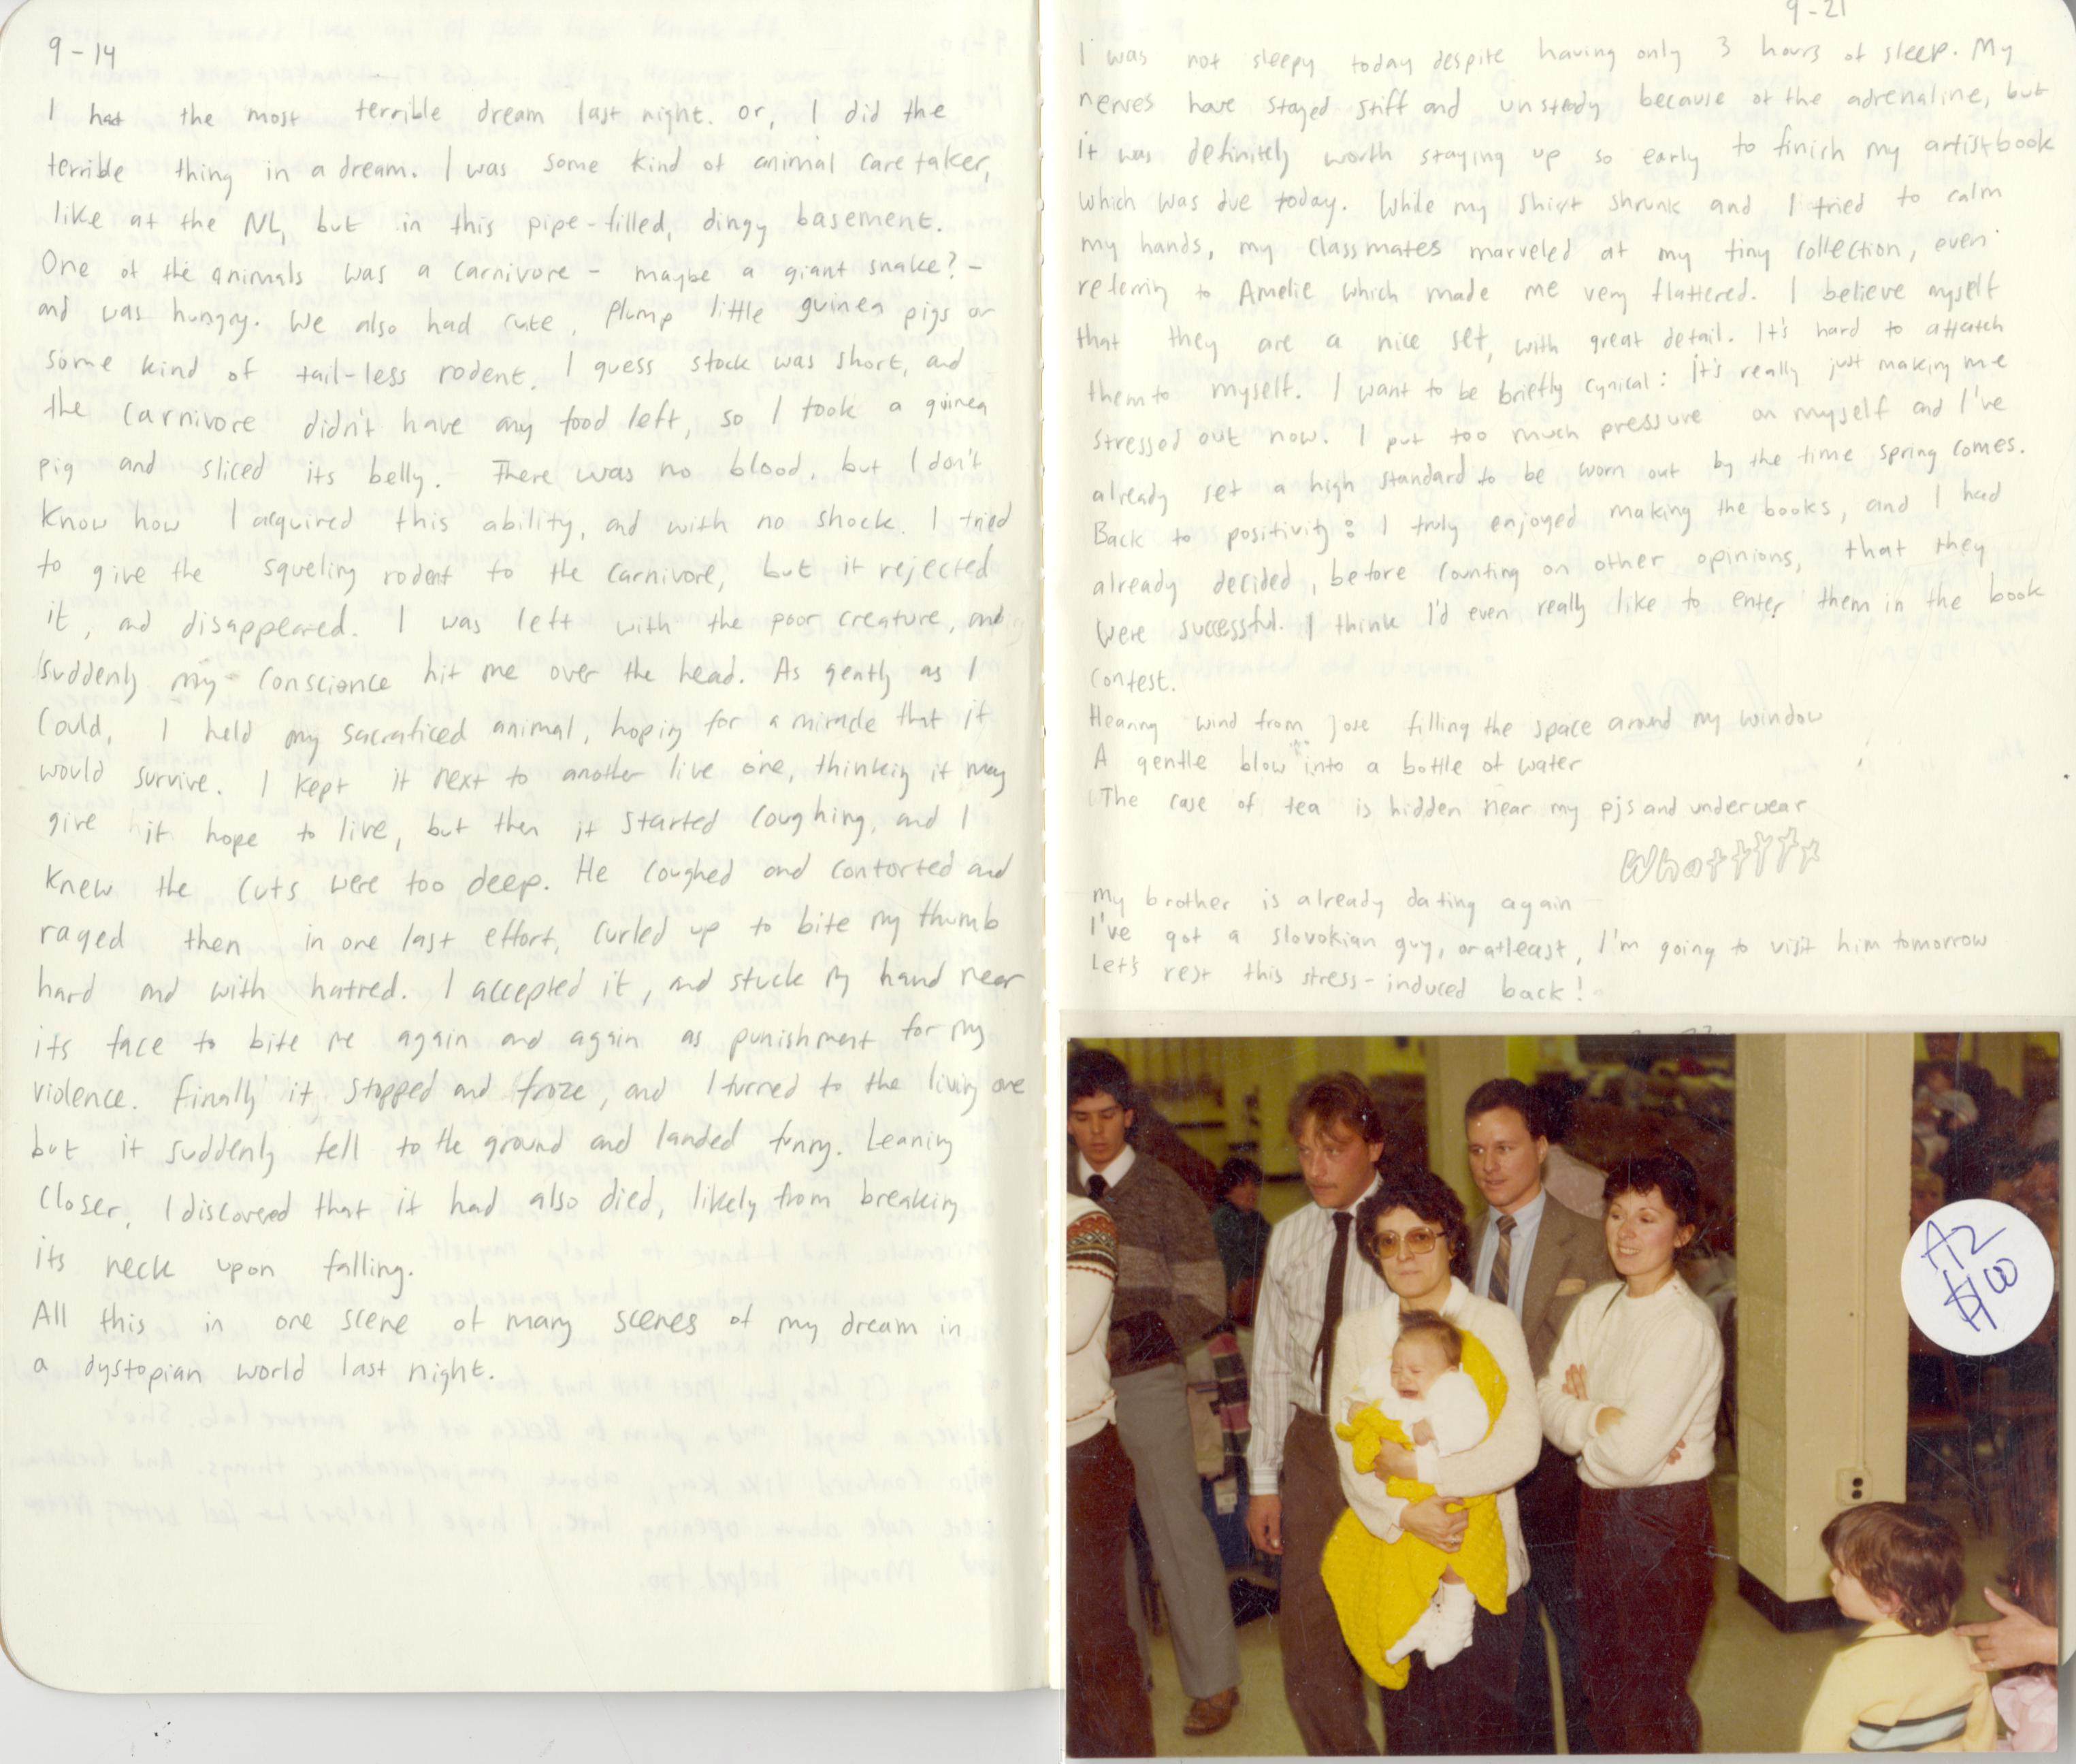 9-14
I had the most terrible dream last night. or, I did the
terrible thing in a dream. I was some kind of animal care taker,
like at the NL, but in this pipe-filled, dingy basement.
One of the animals was a carnivore - maybe a giant snake? -
and was hungry. We also had cute, plump little guinea pigs or
some kind of tail-less rodent. I guess stock was short, and
the carnivore didn't have any food left, so I took a guinea
pig and sliced its belly. There was no blood, but I don't
know how I acquired this ability, and with no shock. I tried
to give the squeling rodent to the carnivore, but it rejected
it, and disappeared. I was left with the poor creature, and
suddenly my conscience hit me over the head. As gently as I
could, I held my sacraficed animal, hoping for a miracle that it
would survive. I kept it next to another live one, thinking it may
give it hope to live, but then it started coughing, and I
knew the cuts were too deep. He coughed and contorted and
raged then in one last effort, curled up to bite my thumb
hard and with hatred. I accepted it, and stuck my hand near
its face to bite me again and again as punishment for my
violence. Finally it stopped and froze, and I turned to the living one
but it suddenly fell to the ground and landed funny. Leaning
closer, I discovered that it had also died, likely from breaking
its neck upon falling.
All this in one scene of many scenes of my dream in
a dystopian world last night.
9-21
I was not sleepy today despite having only 3 hours of sleep. My
nerves have stayed stiff and unsteady because of the adrenaline, but
it was definitely worth staying up so early to finish my artistbook
which was due today. While my shirt shrunk and I tried to calm
my hands, my classmates marveled at my tiny collection, even
referring to Amelie which made me very flattered. I believe myself
that they are a nice set, with great detail. It's hard to attatch
them to myself. I want to be briefly cynical: It's really just making me
stressed out now. I put too much pressure on myself and I've
already set a high standard to be worn out by the time spring comes.
Back to positivity: I truly enjoyed making the books, and I had
already decided, before counting on other opinions, that they
were successful. I think I'd even really like to enter them in the book
contest.
Hearing wind from Jose filling the space around my window
A gentle blow into a bottle of water
The case of tea is hidden near my pjs and underwear
Whatttttt
my brother is already dating again
I've got a slovokian guy, or atleast, I'm going to visit him tomorrow
Let's rest this stress-induced back!
A2
$100